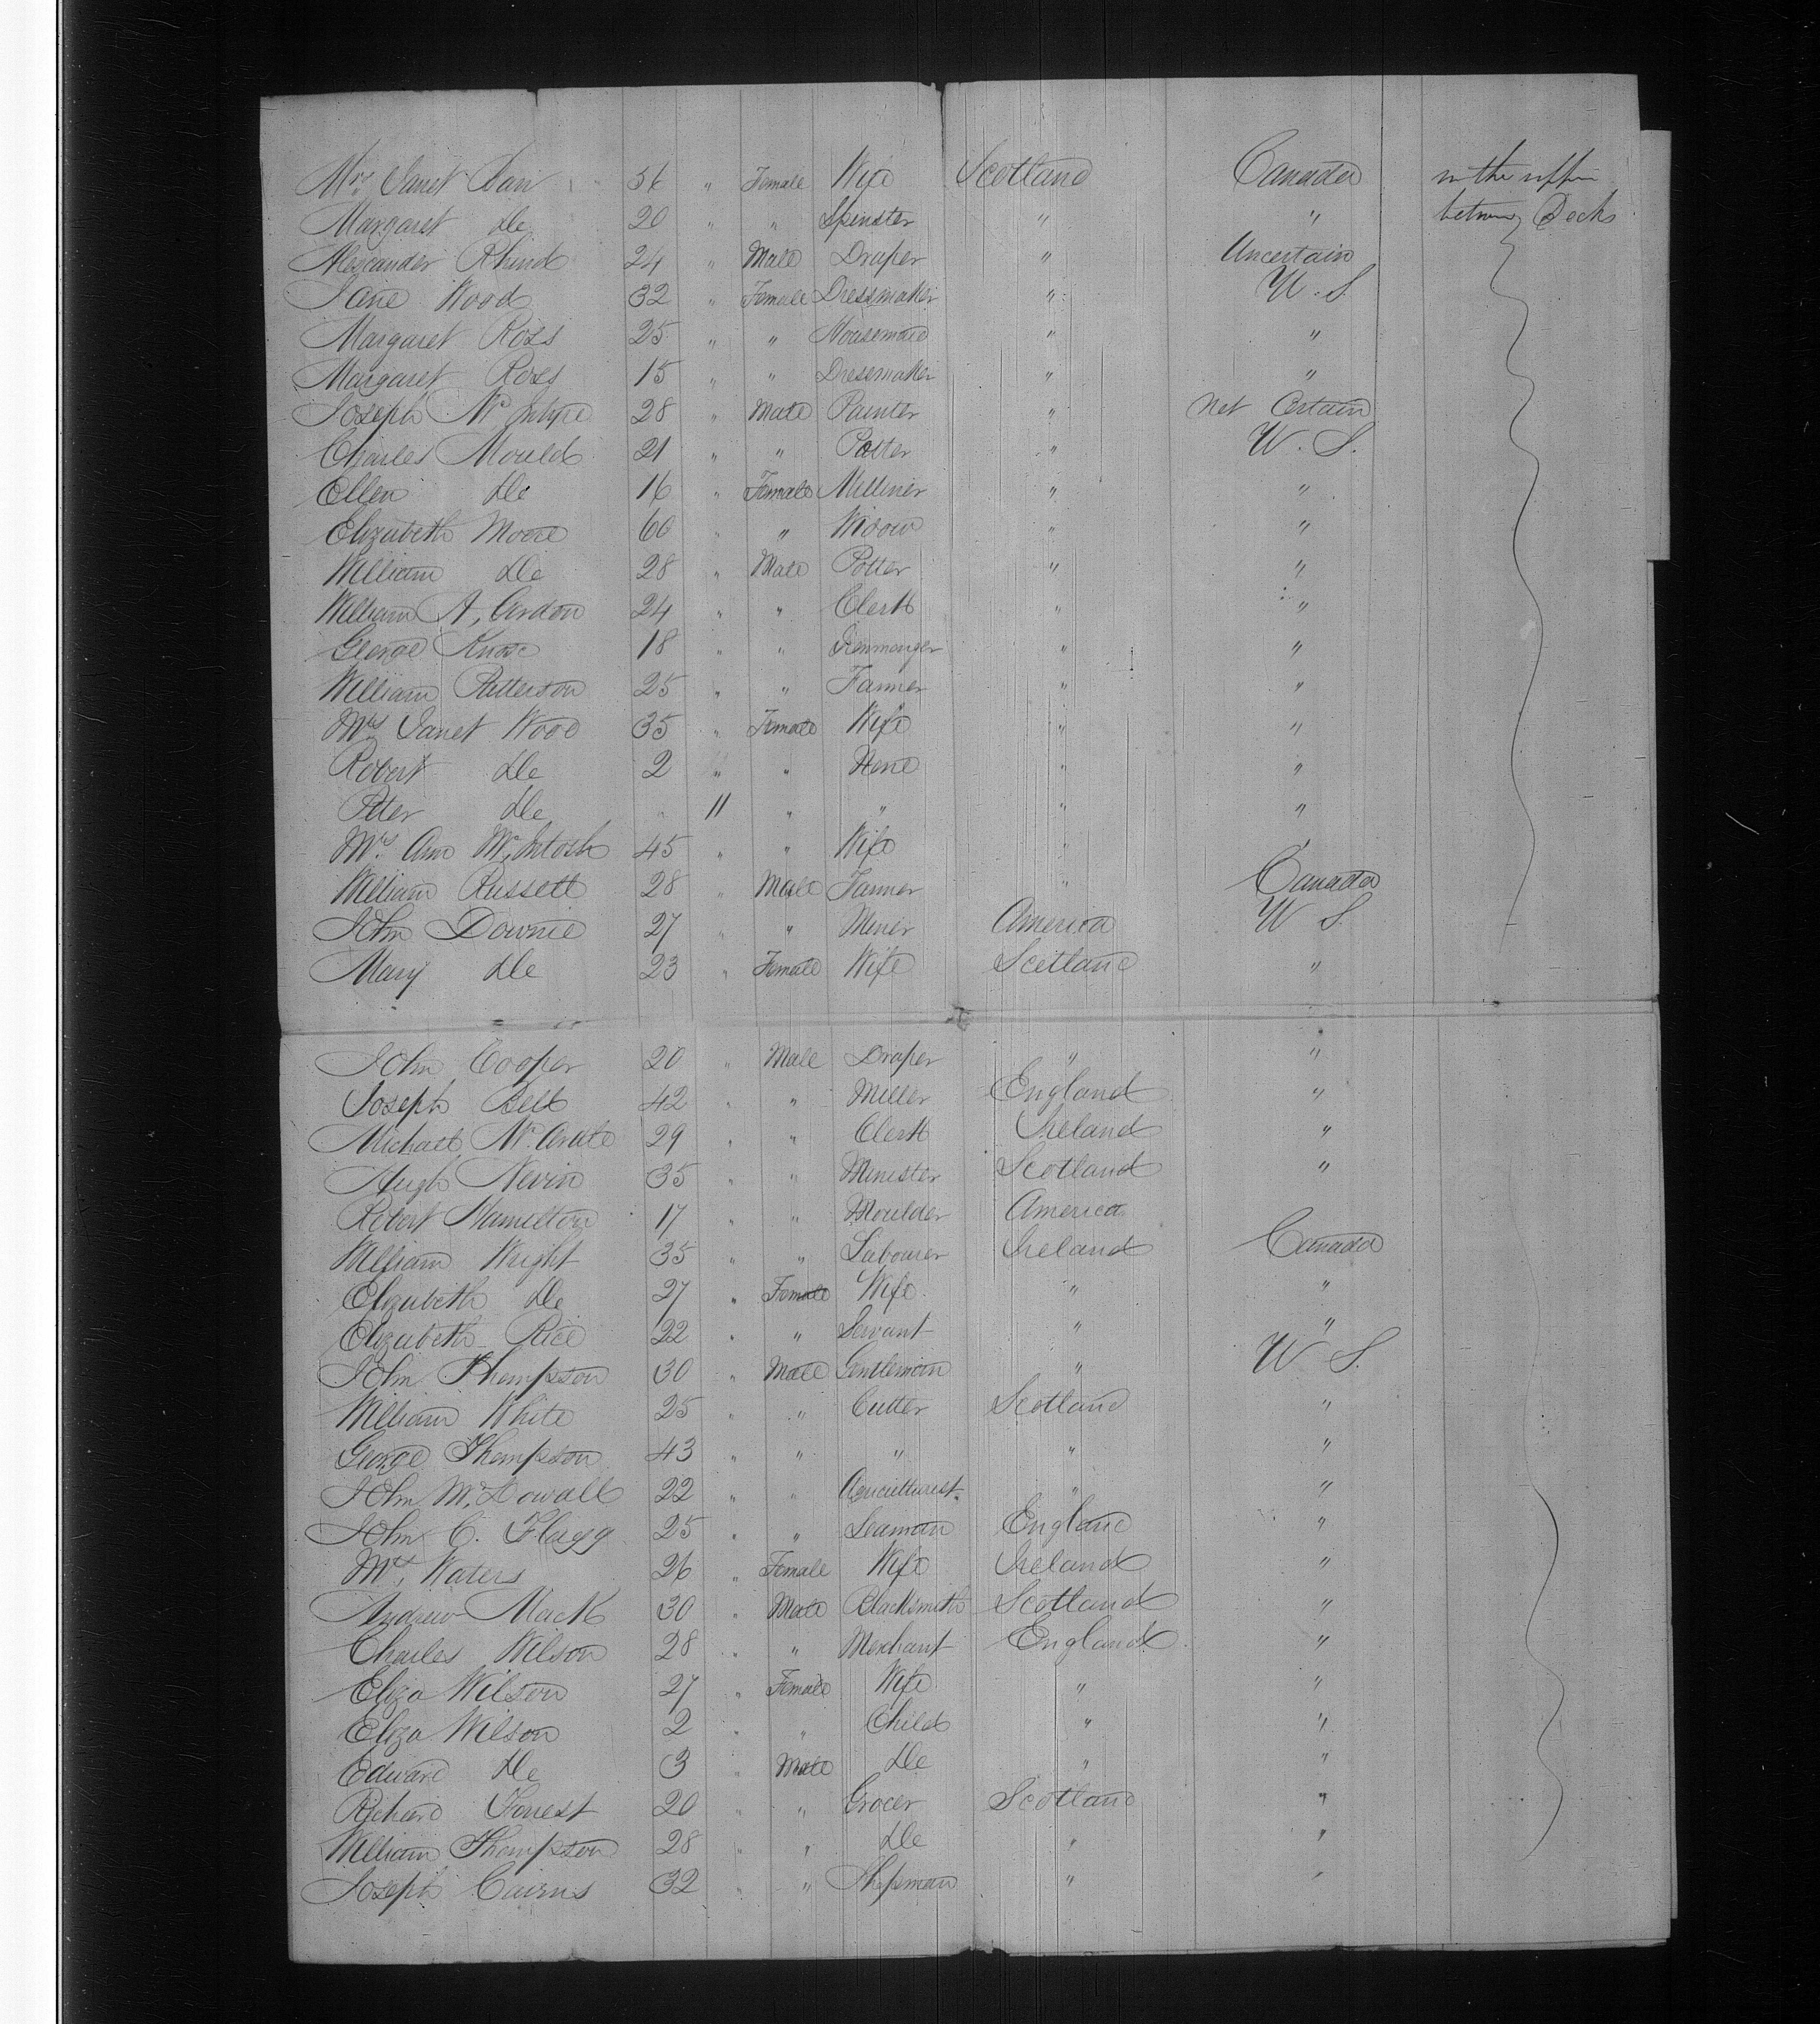 Mrs Janet 56 " Female Wife Scotland Canada in the upper
Margaret Do 20 " " Spinster " " between Decks
Alexander Rhind 24 " Male Draper " Uncertain
Jane Wood 32 " Female Dressmaker " U. S.
Margaret Ross 25 " " Housemaid " "
Margaret Ross 15 " " Dressmaker " "
Joseph McIntyre 28 " Male Painter " Not Certain
Charles Mould 21 " " Potter " U. S.
Ellen Do 16 " Female Milliner " "
Elizabeth Moore 60 " " Widow " "
William Do 28 " Male Potter " "
William A. 24 " " Clerk " "
George Knox 18 " " Ironmonger " "
William Patterson 25 " " Farmer " "
Mrs Janet Wood 35 " Female Wife " "
Robert Do 2 " " None " "
Peter Do " 11 " " " "
Mrs Ann McIntosh 45 " " Wife " "
William Russell 28 " Male Farmer " Canada
John Downie 27 " " Miner America U S.
Mary Do 23 " Female Wife Scotland "
John Cooper 20 " Male Draper " "
Joseph Bell 42 " " Miller England "
Michael 29 " " Clerk Ireland "
Hugh Nevin 35 " " Minister Scotland "
Robert Hamilton 17 " " Moulder America
William Wright 35 " " Labourer Ireland Canada
Elizabeth Do 27 " Female Wife " "
Elizabeth Rice 22 " " Servant " "
John Thompson 30 " Male Gentleman " U S.
William White 25 " " Cutter Scotland "
George Thompson 43 " " " " "
John McDowall 22 " " Agriculturist " "
John C. Flagg 25 " " Seaman England "
Mrs Waters 26 " Female Wife Ireland "
Andrew Mack 30 " Male Blacksmith Scotland "
Charles Wilson 28 " " Merchant England "
Eliza Wilson 27 " Female Wife " "
Eliza Wilson 2 " " Child " "
Edward Do 3 " Male Do " "
Richard Forrest 20 " " Grocer Scotland "
William Thompson 28 " " Do " "
Joseph Cairns 32 " " Shopman " "